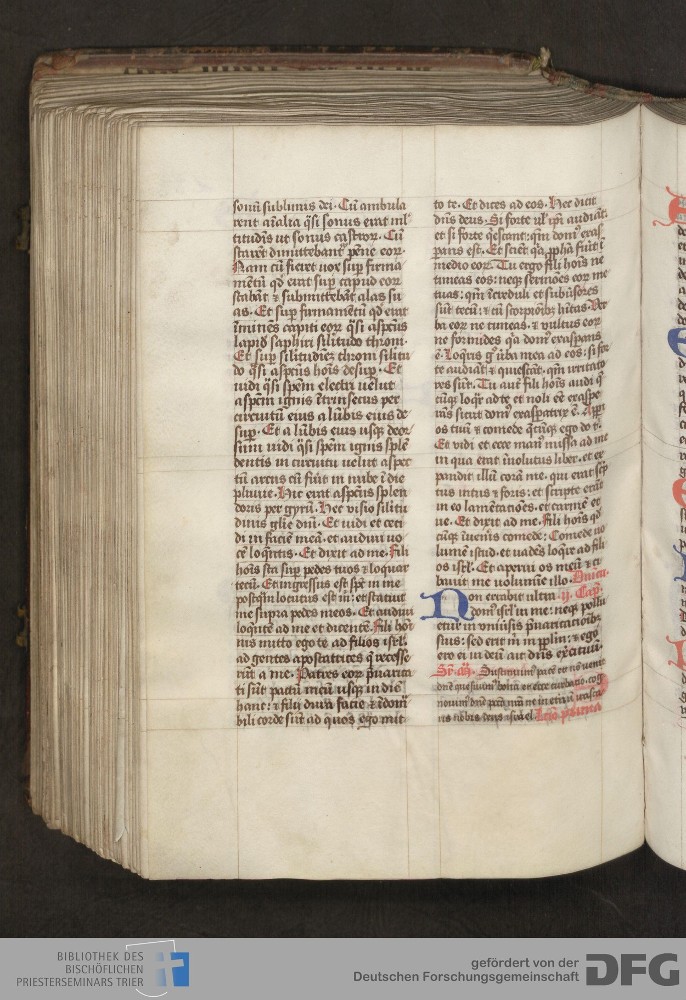 sonū sublimis dei. Cū ambula
rent aīalia q̄si sonus erat ml'
titudīs ut sonus castror. Cū
starēt dimittebant penne eor.
Nam cū fieret vox sup firma
mētū qd erat sup caput eor
stabāt ⁊ submittebāt alas su
as. Et sup firmamētū qd erat
īminēs capiti eor q̄si aspctus
lapid saphiri silitudo throni.
Et sup silitudinē throni silitu
do q̄si aspctus hoīs desup. Et
vidi q̄si spēm electri velut
aspcm ignis ītrinsecus per
circuitū eius a lūbis eius de
sup. Et a lūbis eius usq; deor
sum vidi q̄si spēm ignis splē
dentis in circuitu velut aspec
tū arcus cū fūit in nube ī die
pluuie. Hic erat aspctus splen
doris per gyrū. Hec visio silitu
dinis glīe dnī. Et vidi et ceci
di in faciē meā. et audiui vo
cē loqntis. Et dixit ad me. Fili
hoīs sta sup pedes tuos ⁊ loquar
tecū. Et ingressus est spc in me
postqm locutus est m. et statuit
me supra pedes meos. Et audiui
loqntē ad me et dicentē. Fili hoī
nis mitto ego te ad filios isrl.
ad gentes apostatrices q recesse
rūt a me. Patres eor pvarica
ti sūt pactū meū usq; in diē
hanc. ⁊ filii dura facie ⁊ īdom
bili corde sūt ad quos ego mit
to te. Et dices ad eos. Hec dicit
dns deus. Si forte vl' ipi audiāt.
et si forte qescant: qm dom' exas
perans est. Et sciēt qa ppha fūit ī
medio eor. Tu ergo fili hoīs ne
timeas eos: neq; sermōes eor me
tuas: qm īcreduli et subūsores
sūt tecū: ⁊ cū scorpiōib; hītas. Ver
ba eor ne timeas. ⁊ vultus eor
ne formides qa dom' exasperans
ē. Loqris g ūba mea ad eos: si for
te audiāt ⁊ quiescāt. qm irritato
res sūt. Tu aut fili hoīs audi q
cūq; loqr ad te et noli eē exaspe
rās sicut dom' exasperatrix ē. Apri
os tuū ⁊ comede qcūq; ego do t.
Et vidi et ecce man' missa ad me
in qua erat īuolutus liber. et ex
pandit illū corā me. qui erat scp
tus intus ⁊ foris: et scripte erāt
in eo lamētacōes. et carmē et
ue. Et dixit ad me. Fili hoīs qd
cūq; īuenis comede: Comede vo
lumē istud. et vadēs loqre ad fili
os isrl. Et aperui os meū ⁊ ci
bauit me volumīe illo.
Non creabit ultra ij. Cap.
dom' isrl in me: neq; pollu
etur in vniūsis pvaricatiōib;
suis: sed erit m in pplm: ⁊ ego
ero ei in deū ait dns exercituū.
pacē et nō venit
dne quesiuim' bona et ecce turbatio. cog
nouim' dne peccata nrā ne in etnū irasca
ris nobis deus israel Lco prima
BIBLIOTHEK DES
BISCHÖFLICHEN
PRIESTERSEMINARS TRIER
gefördert von der
Deutschen Forschungsgemeinschaft
DFG